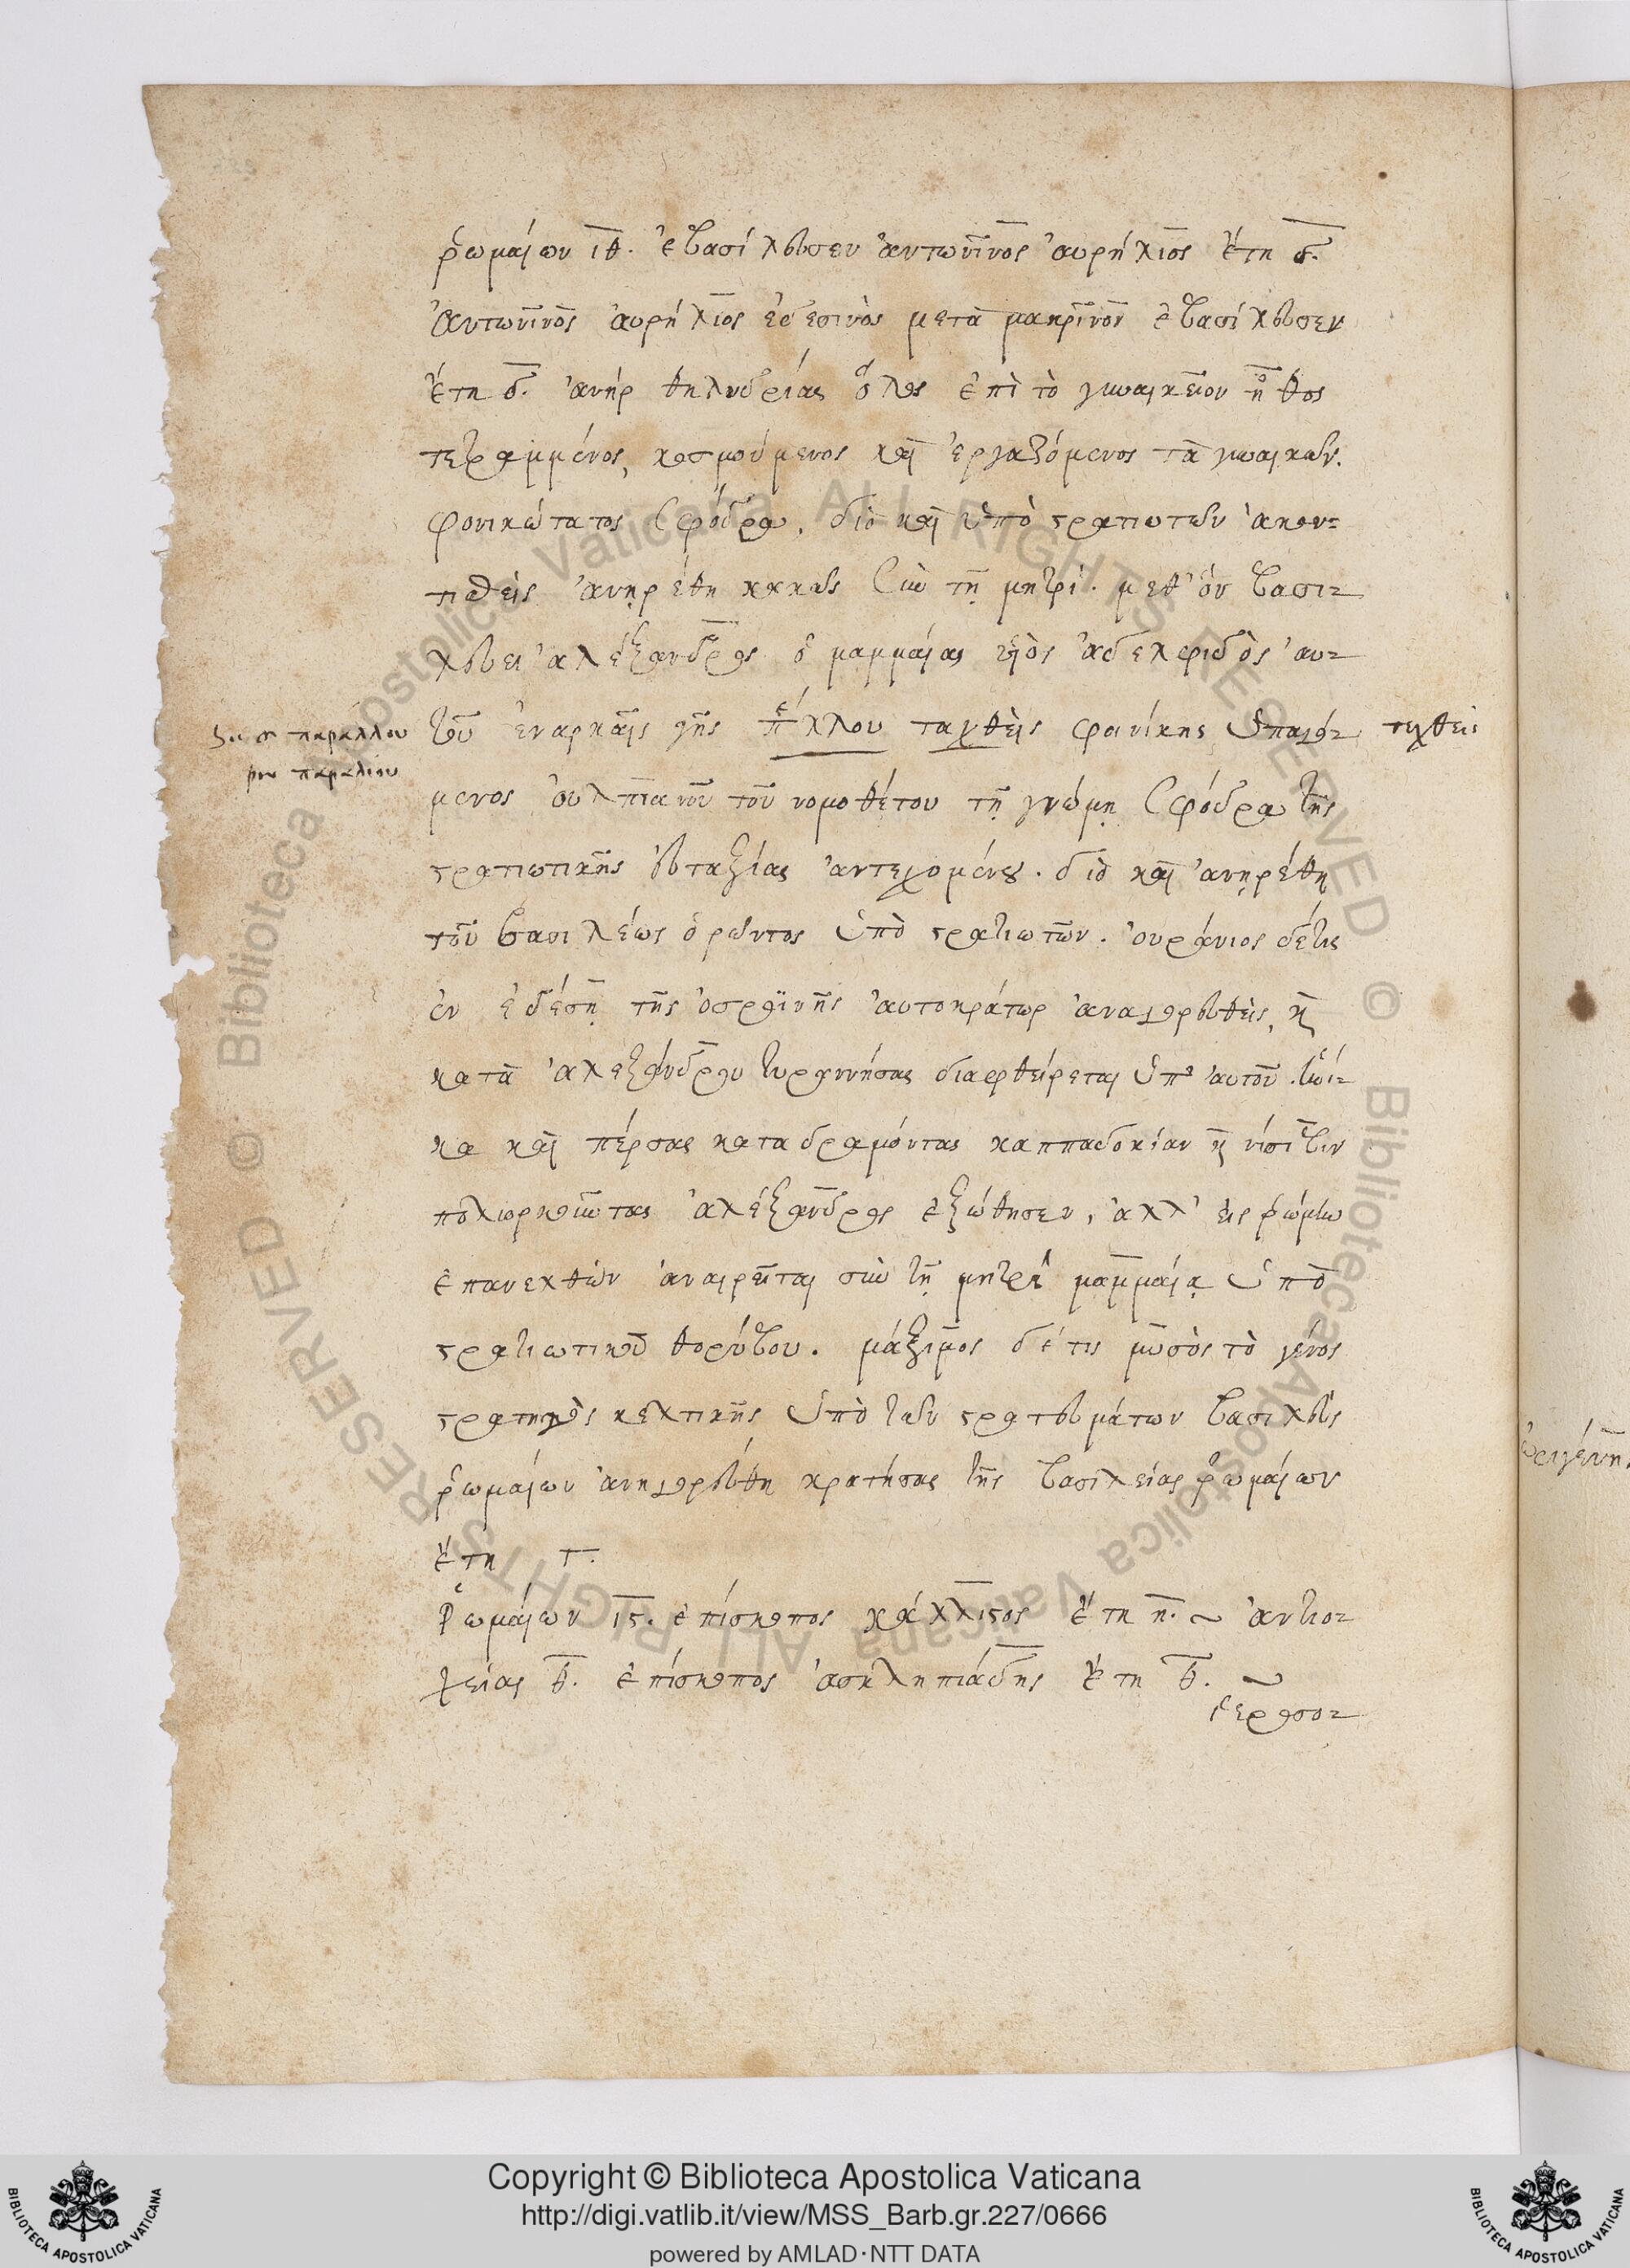 ῥωμαίων ιθ. ἐβασίλευσεν ἀντωνῖνος αὐρήλιος ἔτη δ.
Ἀντωνῖνος αὐρήλιος ἐδεσινὸς μετὰ μακρῖνον ἐβασίλευσεν
ἔτη δ. ἀνὴρ θηλυδρίας ὅλος ἐπὶ τὸ γυναικεῖον ἦθος
τετραμμένος, κοσμούμενος καὶ ἐργαζόμενος τὰ γυναικῶν.
φονικώτατος σφόδρα. διὸ καὶ ὑπὸ στρατιωτῶν ἀκον-
τισθεὶς ἀνῃρέθη κακῶς σὺν τῇ μητρί. μεθ' ὃν βασι-
λεύει ἀλέξανδρος ὁ μαμμαίας υἱὸς ἀδελφιδὸς αὐ-
τοῦ ἐναρκαῖς γῆς ταχθεὶς φοινίκης ὑπαγό-
τεχθεὶς
παράλλου
παραλίου
μενος οὐλπιανοῦ τοῦ νομοθέτου τῇ γνώμῃ σφόδρα τῆς
στρατιωτικῆς εὐταξίας ἀντεχομένου. διὸ καὶ ἀνῃρέθη
τοῦ βασιλέως ὁρῶντος ὑπὸ στρατιωτῶν. οὐράνιος δέ τις
ἐν ἐδέσῃ τῆς ὀσροϊνῆς αὐτοκράτωρ ἀναγορευθεὶς, καὶ
κατὰ ἀλεξάνδρου τυραννήσας διαφθείρεται ὑπ' αὐτοῦ. ἡνί-
κα καὶ πέρσας καταδραμόντας καππαδοκίαν καὶ νίσιβιν
πολιορκοῦντας ἀλέξανδρος ἐξώθησεν, ἀλλ' εἰς ῥώμην
ἐπανελθὼν ἀναιρεῖται σὺν τῇ μητρὶ μαμμαίᾳ ὑπὸ
στρατιωτικοῦ θορύβου. μάξιμος δέ τις μυσὸς τὸ γένος
στρατηγὸς κελτικῆς ὑπὸ τῶν στρατευμάτων βασιλεὺς
ῥωμαίων ἀνηγορεύθη κρατήσας τῆς βασιλείας ῥωμαίων
ἔτη γ.
Ῥωμαίων ις. ἐπίσκοπος κάλλιστος ἔτη η. ~ ἀντιο-
χείας θ. ἐπίσκοπος ἀσκληπιάδης ἔτη θ. ~
ἱεροσο-
ὠριγένην
Copyright © Biblioteca Apostolica Vaticana
http://digi.vatlib.it/view/MSS_Barb.gr.227/0666
powered by AMLAD·NTT DATA
BIBLIOTECA APOSTOLICA VATICANA
BIBLIOTECA APOSTOLICA VATICANA
Biblioteca Apostolica Vaticana ALL RIGHTS RESERVED © Biblioteca Apostolica Vaticana ALL RIGHTS RESERVED ©